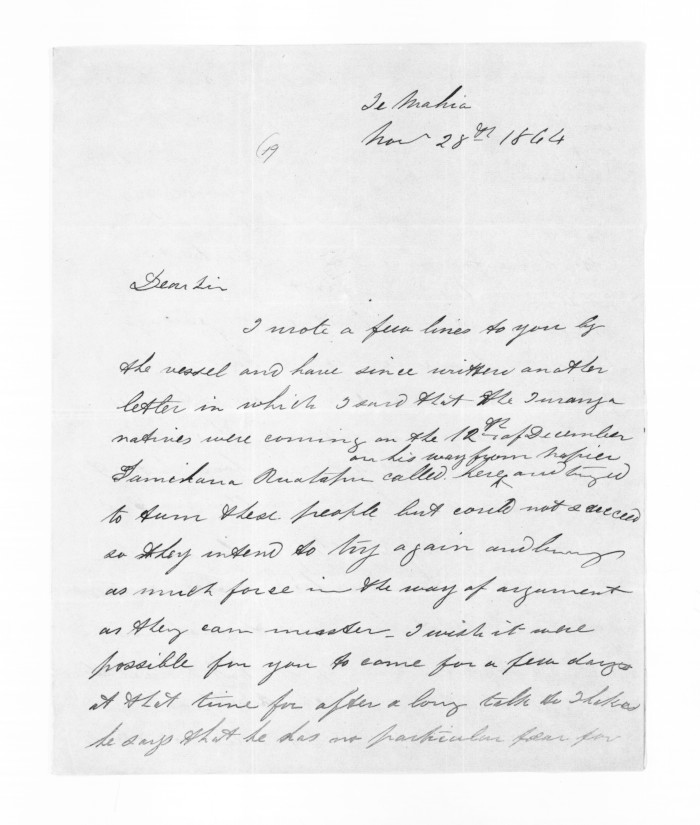 Te Mahia
Nov 28th 1864
Dear Sir
I wrote a few lines to you by
the vessel and have since written another
letter in which I said that the Turanga
natives were coming on the 12th of December
on his way from Napier
Tamihana Ruatapu called here and tryed
to turn these people but could not succeed
so they intend to try again and bring
as much force in the way of argument
as they can muster _ I wish it were
possible for you to come for a few days
at that time for after a long talk
he says that he has no particular fear for